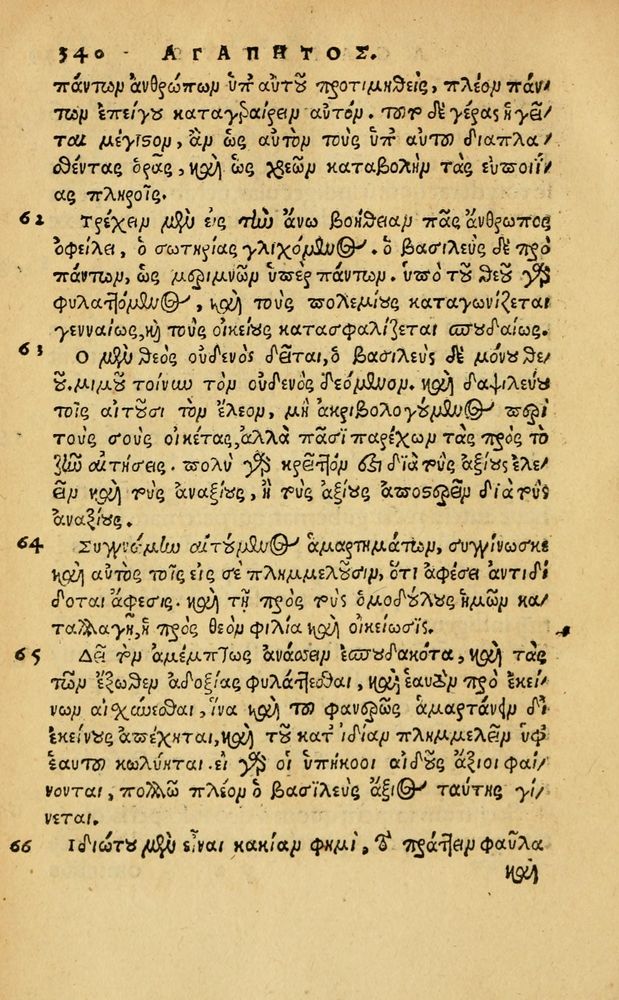 340 ΑΓΑΠΗΤΟΣ.
πάντων ἀνθρώπων ὑπ' αὐτοῦ προτιμηθεὶς, πλέον πάν-
των ἐπείγου καταγεραίρειν αὐτόν. τοῦτο δὲ γέρας ἡγεῖ-
ται μέγιστον, ἂν ὡς αὐτὸν τοὺς ὑπ' αὐτοῦ διαπλα-
σθέντας ὁρᾷς, καὶ ὡς χρεῶν καταβολὴν τὰς εὐποιΐ-
ας πληροῖς.
62 Τρέχειν μὲν εἰς τὴν ἄνω βοήθειαν πᾶς ἄνθρωπος
ὀφείλει, ὁ σωτηρίας γλιχόμενος. ὁ βασιλεὺς δὲ πρὸ
πάντων, ὡς μεριμνῶν ὑπὲρ πάντων. ὑπὸ τοῦ θεοῦ γὰρ
φυλαττόμενος, καὶ τοὺς πολεμίους καταγωνίζεται
γενναίως, καὶ τοὺς οἰκείους κατασφαλίζεται σπουδαίως.
63 Ὁ μὲν θεὸς οὐδενὸς δεῖται, ὁ βασιλεὺς δὲ μόνου θε-
οῦ. μιμοῦ τοίνυν τὸν οὐδενὸς δεόμενον. καὶ δαψιλεύου
τοῖς αἰτοῦσι τὸν ἔλεον, μὴ ἀκριβολογούμενος περὶ
τοὺς σοὺς οἰκέτας, ἀλλὰ πᾶσι παρέχων τὰς πρὸς τὸ
ζῆν αἰτήσεις. πολὺ γὰρ κρεῖττόν ἐστι διὰ τοὺς ἀξίους ἐλε-
εῖν καὶ τοὺς ἀναξίους, ἢ τοὺς ἀξίους ἀποστερεῖν διὰ τοὺς
ἀναξίους.
64 Συγγνώμην αἰτούμενος ἁμαρτημάτων, συγγίνωσκε
καὶ αὐτὸς τοῖς εἰς σὲ πλημμελοῦσιν, ὅτι ἀφέσει ἀντιδί-
δοται ἄφεσις. καὶ τῇ πρὸς τοὺς ὁμοδούλους ἡμῶν κα-
ταλλαγῇ, ἡ πρὸς θεὸν φιλία καὶ οἰκείωσις.
65 Δεῖ τὸν ἀμέμπτως ἀνάσσειν ἐσπουδακότα, καὶ τὰς
τῶν ἔξωθεν ἀδοξίας φυλάττεσθαι, καὶ ἑαυτὸν πρὸ ἐκεί-
νων αἰσχύνεσθαι, ἵνα καὶ τοῦ φανερῶς ἁμαρτάνειν δι'
ἐκείνους ἀπέχηται, καὶ τοῦ κατ' ἰδίαν πλημμελεῖν ὑφ'
ἑαυτοῦ κωλύηται. εἰ γὰρ οἱ ὑπήκοοι αἰδοῦς ἄξιοι φαί-
νονται, πολλῷ πλέον ὁ βασιλεὺς ἄξιος ταύτης γί-
νεται.
66 Ἰδιώτου μὲν εἶναι κακίαν φημὶ, τὸ πράττειν φαῦλα
καὶ